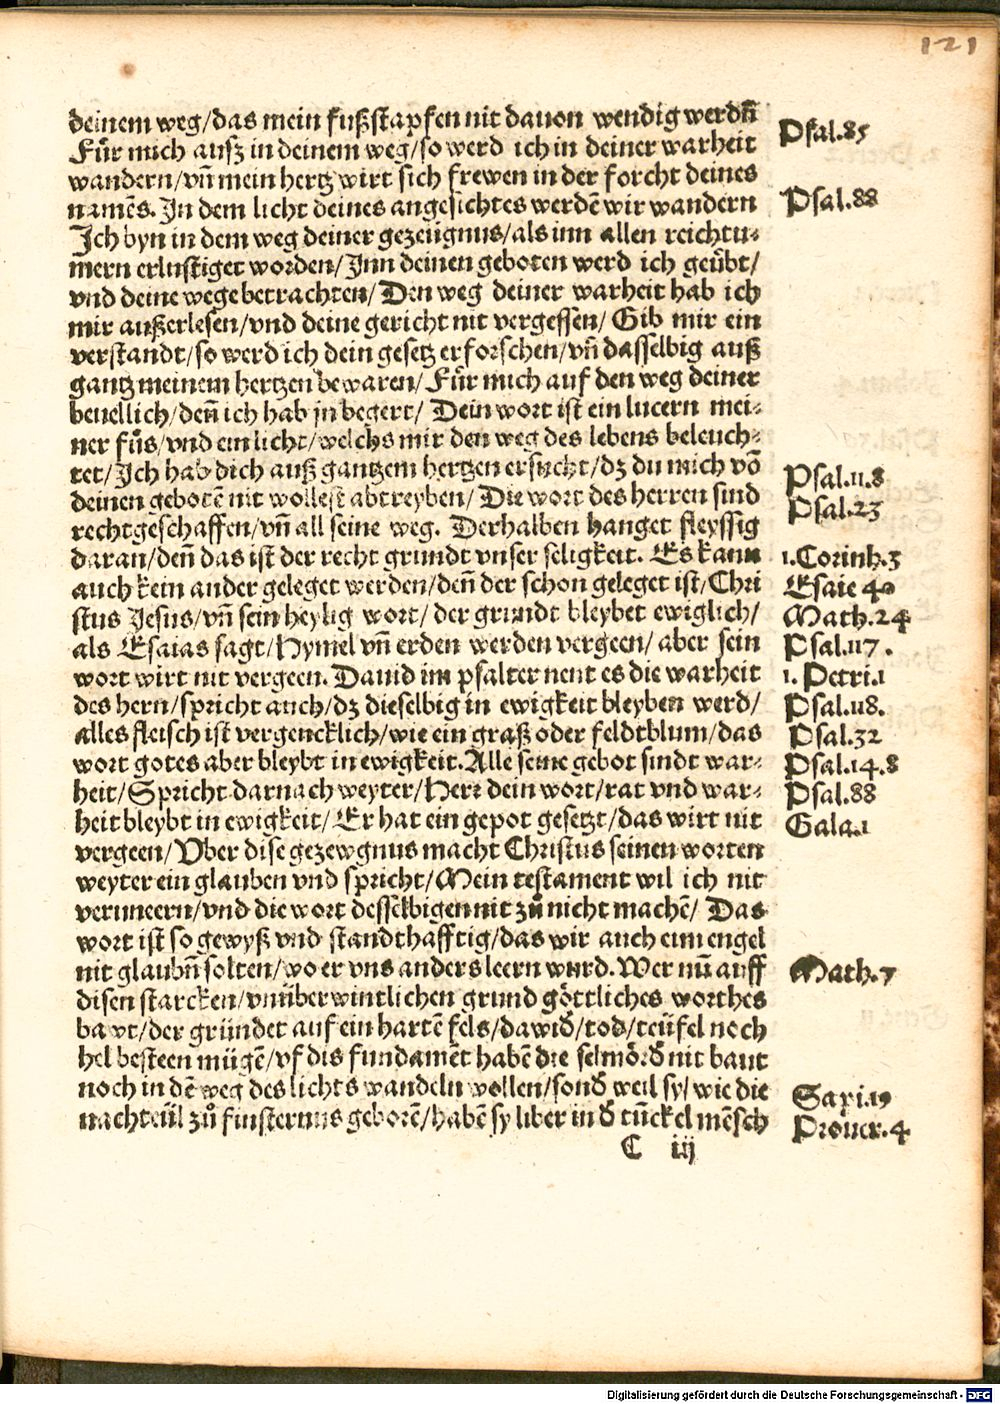 121
deinem weg/das mein fußstapfen nit dauon wendig werdn̄
Fuͤr mich ausz in deinem weg/so werd ich in deiner warheit
wandern/vn̄ mein hertz wirt sich frewen in der forcht deines
namēs. In dem licht deines angesichtes werdē wir wandern
Ich byn in dem weg deiner gezeügnus/als inn allen reichtu⸗
mern erlustiget worden/Inn deinen geboten werd ich geuͤbt/
vnd deine wege betrachten/Den weg deiner warheit hab ich
mir außerlesen/vnd deine gericht nit vergessen/Gib mir ein
verstandt/so werd ich dein gesetz erforschen/vn̄ dasselbig auß
gantz meinem hertzen bewaren/Fuͤr mich auf den weg deiner
beuellich/den̄ ich hab jn begert/ Dein wort ist ein lucern mei⸗
ner fuͤs/vnd ein licht/welchs mir den weg des lebens beleuch⸗
tet/Ich hab dich auß gantzem hertzen ersucht/dz du mich vō
deinen gebotē nit wollest abtreyben/Die wort des herren sind
rechtgeschaffen/vn̄ all seine weg. Derhalben hanget fleyssig
daran/den̄ das ist der recht grundt vnser seligkeit. Es kann
auch kein ander geleget werden/den̄ der schon geleget ist/Chri
stus Jesus/vn̄ sein heylig wort/ der grundt bleybet ewiglich/
als Esaias sagt/Hymel vn̄ erden werden vergeen/ aber sein
wort wirt nit vergeen. Dauid im psalter nent es die warheit
des hern/spricht auch/dz dieselbig in ewigkeit bleyben werd/
alles fleisch ist vergencklich/wie ein graß oder feldtblum/das
wort gotes aber bleybt in ewigkeit. Alle seine gebot sindt war⸗
heit/Spricht darnach weyter/Herr dein wort/rat vnd war⸗
heit bleybt in ewigkeit/ Er hat ein gepot gesetzt/das wirt nit
vergeen/Vber dise gezewgnus macht Christus seinen worten
weyter ein glauben vnd spricht/Mein testament wil ich nit
veruneern/vnd die wort desselbigen nit zuͦ nicht machē/ Das
wort ist so gewyß vnd standthafftig/das wir auch eim engel
nit glaubn̄ solten/wo er vns anders leern wurd. Wer nū auff
disen starcken/vnüberwintlichen grund goͤttliches worthes
bawt/der gründet auf ein hartē fels/dawid̄/tod/teüfel noch
hel besteen mügē/vf dis fundamēt habē die selmoͤrd̄ nit baut
noch in dē weg des lichts wandeln wollen/sond̄ weil sy/wie die
nachteül zuͦ finsternus geborē/habē sy liber in d̄ tūckel mēsch
C iij
Psal.85
Psal.88
Psal.11.8
Psal.23
1.Corinh.3
Esaie 40
Math.24
Psal.117.
1. Petri.1
Psal.118.
Psal.32
Psal.14.8
Psal.88
Gala.1
Math.7
Sapi.19
Prouer.4
Digitalisierung gefördert durch die Deutsche Forschungsgemeinschaft - DFG